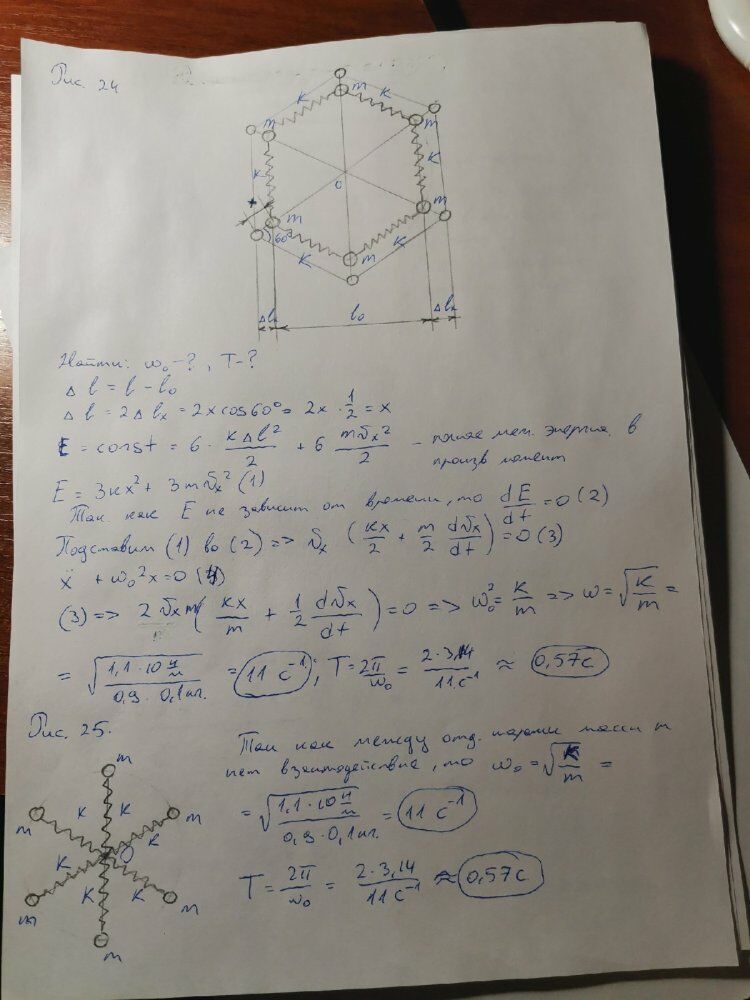 Рис. 24
m
K
K
m
m
K
K
O
m
m
60°
K
K
m
Δlx
l₀
Δlx
Найти: ω₀-? , T-?
Δl = l - l₀
Δl = 2Δlx = 2x cos60° = 2x · 1/2 = x
E = const = 6 · kΔl²/2 + 6 mVx²/2 - полная мех. энергия в
произв момент
E = 3kx² + 3mVx² (1)
Так как E не зависит от времени, то dE/dt = 0 (2)
Подставим (1) во (2) => Vx (kx/2 + m/2 dVx/dt) = 0 (3)
ẍ + ω₀²x = 0 (4)
(3) => 2Vx m (kx/m + 1/2 dVx/dt) = 0 => ω₀² = k/m => ω = √(k/m) =
= √(1,1·10 н/м / 0,9·0,1кг.) = 11 c⁻¹; T = 2π/ω₀ = 2·3,14/11c⁻¹ ≈ 0,57c
Рис. 25.
Так как между отд. парами масс m
нет взаимодействие, то ω₀ = √(k/m) =
= √(1,1·10 н/м / 0,9·0,1кг.) = 11 c⁻¹
T = 2π/ω₀ = 2·3,14/11c⁻¹ ≈ 0,57c
m
m
K
K
m
K
K
O
K
K
m
m
m